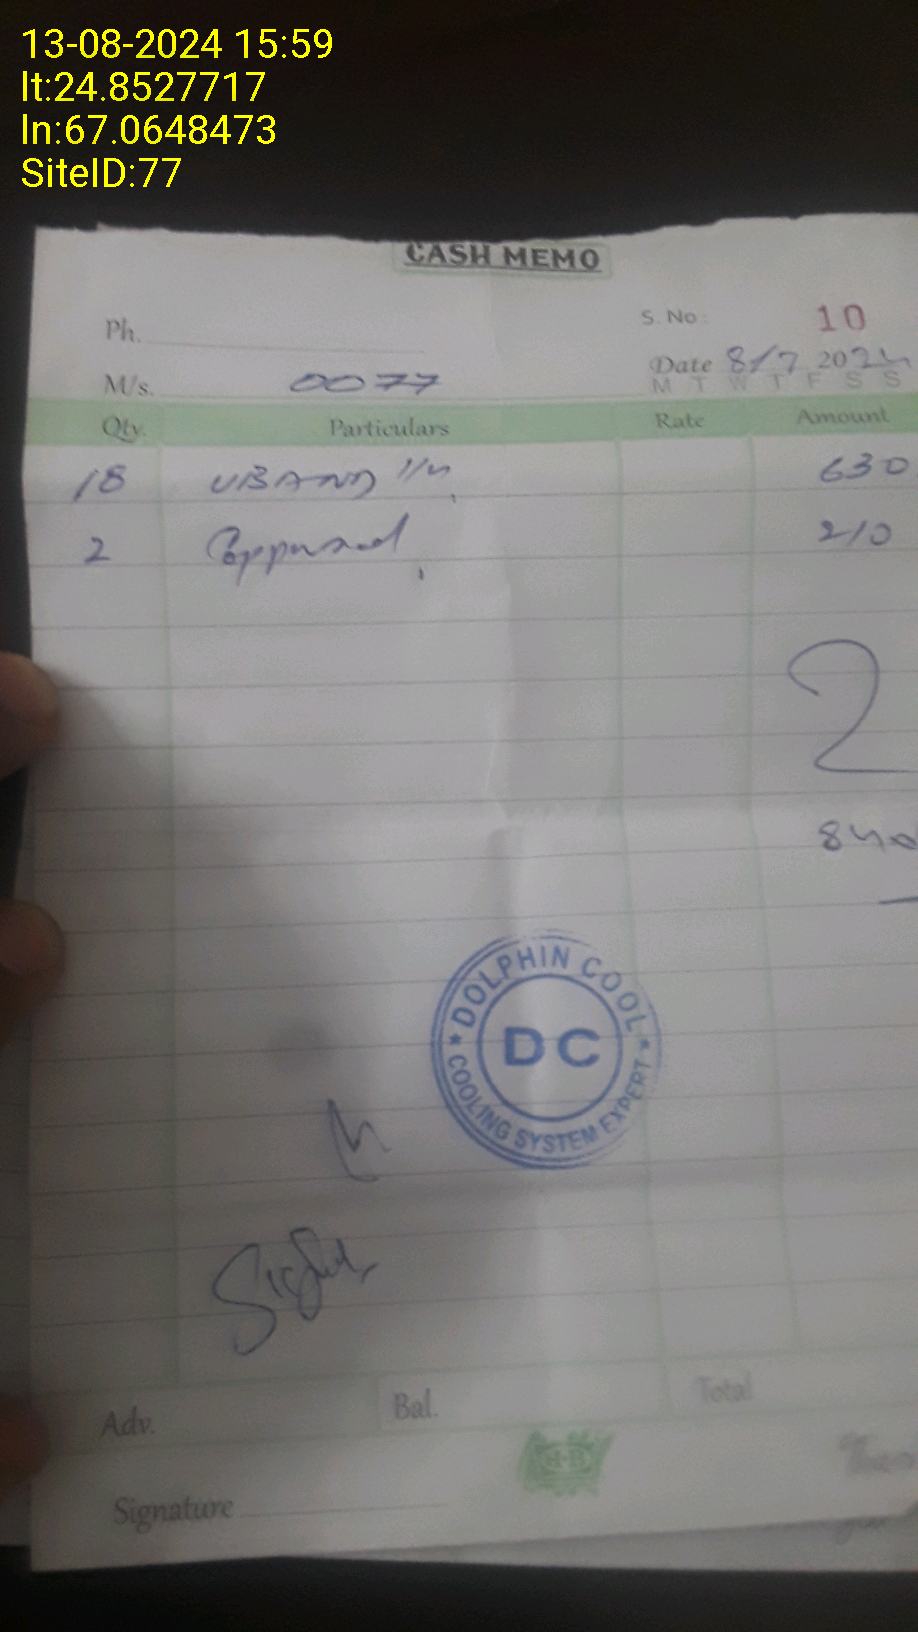 13-08-2024 15:59
lt:24.8527717
ln:67.0648473
SiteID:77
CASH MEMO
Ph.
S. No: 10
Date 8/7 2024
M/s. 0077
M T W T F S S
Qty. Particulars Rate Amount
18 UBAND 630
2 210
2
840
DOLPHIN COOL
DC
COOLING SYSTEM EXPERT
Adv. Bal. Total
Signature